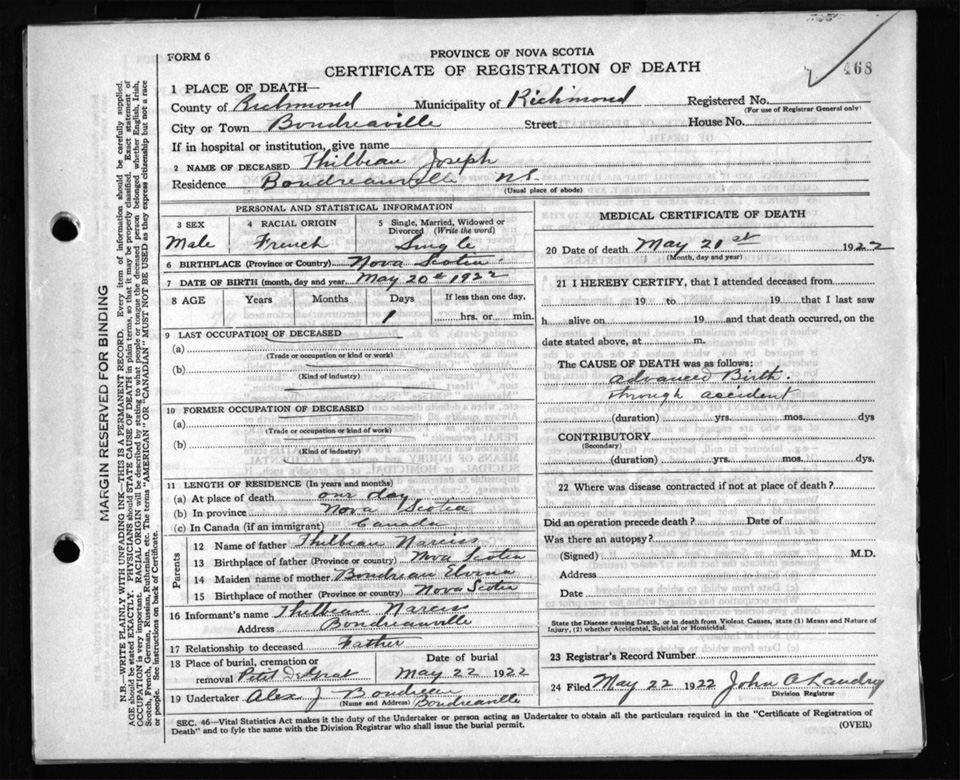 468
FORM 6
PROVINCE OF NOVA SCOTIA
CERTIFICATE OF REGISTRATION OF DEATH
1 PLACE OF DEATH—
County of Richmond Municipality of Richmond Registered No.
(For use of Registrar General only)
City or Town Bondreaville Street House No.
If in hospital or institution, give name
2 NAME OF DECEASED Thilbeau Joseph
Residence Bondreauville N.S.
(Usual place of abode)
PERSONAL AND STATISTICAL INFORMATION
3 SEX 4 RACIAL ORIGIN 5 Single, Married, Widowed or
Divorced (Write the word)
Male French Single
6 BIRTHPLACE (Province or Country) Nova Scotia
7 DATE OF BIRTH (month, day and year) May 20th 1922
8 AGE Years Months Days If less than one day,
1 hrs. or min.
9 LAST OCCUPATION OF DECEASED
(a)
(Trade or occupation or kind of work)
(b)
(Kind of industry)
10 FORMER OCCUPATION OF DECEASED
(a)
(Trade or occupation or kind of work)
(b)
(Kind of industry)
11 LENGTH OF RESIDENCE (In years and months)
(a) At place of death one day
(b) In province Nova Scotia
(c) In Canada (if an immigrant) Canada
Parents
12 Name of father Thilbeau Narciss
13 Birthplace of father (Province or country) Nova Scotia
14 Maiden name of mother Bondreau Elvina
15 Birthplace of mother (Province or country) Nova Scotia
16 Informant's name Thilbeau Narciss
Address Bondreanville
17 Relationship to deceased Father
18 Place of burial, cremation or Date of burial
removal Petit DeGrat May 22 1922
19 Undertaker Alex J Bondreau
(Name and Address) Bondreaville
MEDICAL CERTIFICATE OF DEATH
20 Date of death May 21st 1922
(Month, day and year)
21 I HEREBY CERTIFY, that I attended deceased from
19 to 19 that I last saw
h alive on 19 and that death occurred, on the
date stated above, at m.
The CAUSE OF DEATH was as follows:
advanced Birth.
through accident
(duration) yrs. mos. dys
CONTRIBUTORY
(Secondary)
(duration) yrs. mos. dys.
22 Where was disease contracted if not at place of death?
Did an operation precede death? Date of
Was there an autopsy?
(Signed) M.D.
Address
Date
State the Disease causing Death, or in death from Violent Causes, state (1) Means and Nature of
Injury, (2) whether Accidental, Suicidal or Homicidal.
23 Registrar's Record Number
24 Filed May 22 1922 John A Landry
Division Registrar
SEC. 46—Vital Statistics Act makes it the duty of the Undertaker or person acting as Undertaker to obtain all the particulars required in the "Certificate of Registration of
Death" and to fyle the same with the Division Registrar who shall issue the burial permit.
(OVER)
MARGIN RESERVED FOR BINDING
N.B.—WRITE PLAINLY WITH UNFADING INK—THIS IS A PERMANENT RECORD. Every item of information should be carefully supplied.
AGE should be stated EXACTLY. PHYSICIANS should STATE CAUSE OF DEATH in plain terms, so that it may be properly classified. Exact statement of
OCCUPATION is very important. RACIAL ORIGIN will be described by stating to what people or tongue the deceased person belonged whether English, Irish,
Scotch, French, German, Russian, Ruthenian, etc. The terms "AMERICAN" OR "CANADIAN" MUST NOT BE USED as they express citizenship but not a race
or people. See instructions on back of Certificate.